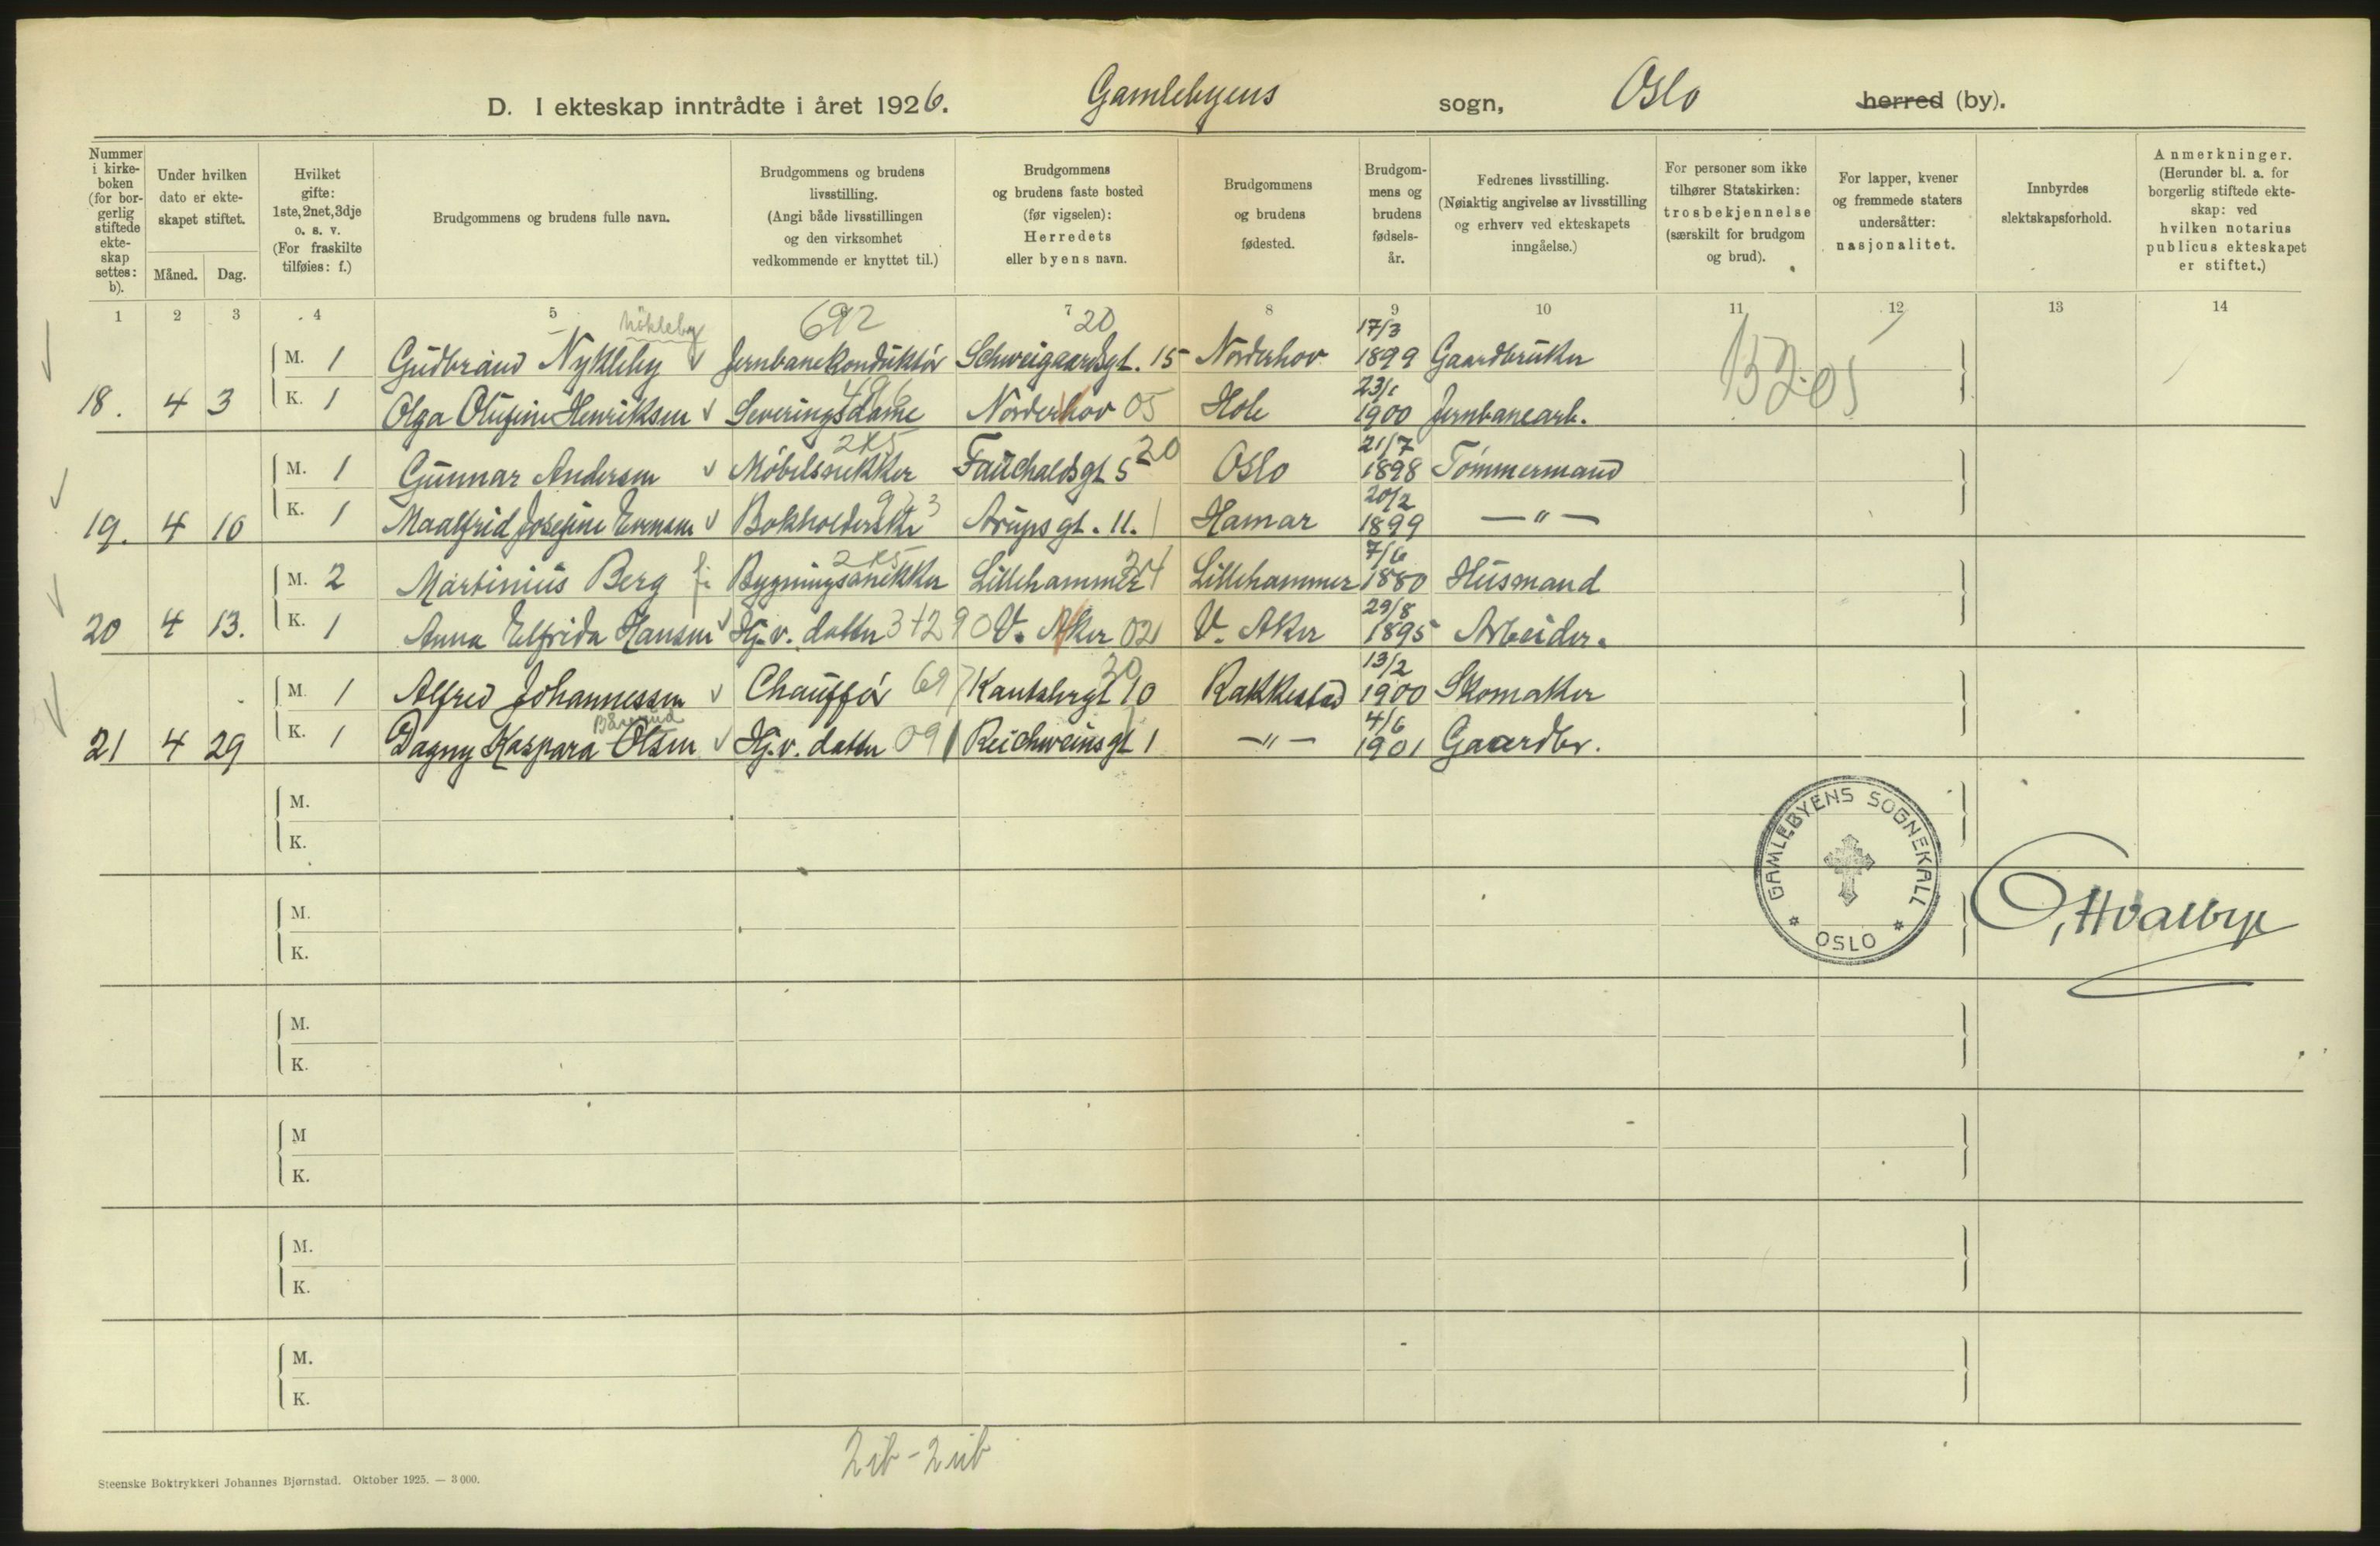 D. I ekteskap inntrådte i året 1926. Gamlebyens sogn, Oslo herred (by).
Nummer i kirkeboken (for borgerlig stiftede ekteskap settes: b).
Under hvilken dato er ekteskapet stiftet.
Måned. Dag.
Hvilket gifte: 1ste, 2net, 3dje o. s. v. (For fraskilte tilføies: f.)
Brudgommens og brudens fulle navn.
Brudgommens og brudens livsstilling. (Angi både livsstillingen og den virksomhet vedkommende er knyttet til.)
Brudgommens og brudens faste bosted (før vigselen): Herredets eller byens navn.
Brudgommens og brudens fødested.
Brudgommens og brudens fødselsår.
Fedrenes livsstilling. (Nøiaktig angivelse av livsstilling og erhverv ved ekteskapets inngåelse.)
For personer som ikke tilhører Statskirken: trosbekjennelse (særskilt for brudgom og brud).
For lapper, kvener og fremmede staters undersåtter: nasjonalitet.
Innbyrdes slektskapsforhold.
Anmerkninger. (Herunder bl. a. for borgerlig stiftede ekteskap: ved hvilken notarius publicus ekteskapet er stiftet.)
1 2 3 4 5 6 7 8 9 10 11 12 13 14
Nökleby 692 20 17/3
M. 1 Gudbrand Nykleby Jernbanekonduktör Schweigaardsgt. 15 Norderhov 1899 Gaardbruker
23/1
18. 4 3 K. 1 Olga Olufine Henriksen Severingsdame Norderhov 05 Hole 1900 Jernbanearb.
245 20 21/7
M. 1 Gunnar Andersen Møbelsnekker Fauchaldsgt 5 Oslo 1898 Tømmermand
20/2
19. 4 10 K. 1 Maalfrid Josefine Evensen Bokholderske Arupsgt. 11. Hamar 1899 —"—
245 7/6
M. 2 Martinius Berg f. Bygningssnekker Lillehammer Lillehammer 1880 Husmand
29/8
20 4 13. K. 1 Anna Elfrida Hansen Hj.v. datter V. Aker 021 V. Aker 1895 Arbeider.
13/2
M. 1 Alfred Johannessen Chauffør 697 Kanslergt 10 Rakkestad 1900 Skomaker
4/6
21 4 29 K. 1 Dagny Kaspara Olsen Hj.v. datter 091 Reichweinsgt 1 —"— 1901 Gaardbr.
M.
K.
GAMLEBYENS SOGNEKALL
OSLO
M.
K.
M.
K.
M
K.
M.
K.
M.
K.
2ib-2ub
Steenske Boktrykkeri Johannes Bjørnstad. Oktober 1925. — 3 000.